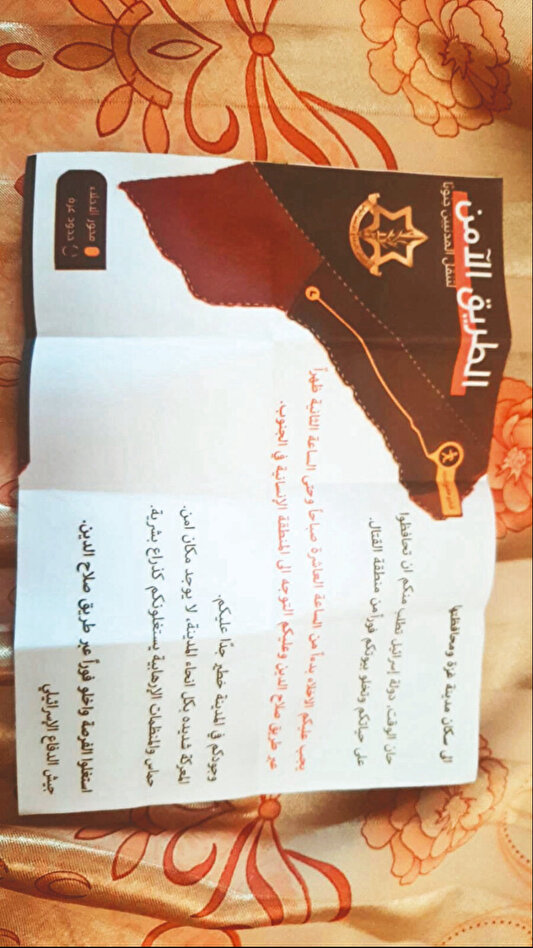 الطريق الآمن
لتنقل المدنيين جنوبًا
محور الإخلاء
حدود غزة
الى سكان مدينة غزة ومحافظتها
حان الوقت، دولة إسرائيل تطلب منكم ان تحافظوا
على حياتكم وتخلو بيوتكم فوراً من منطقة القتال.
يجب عليكم الاخلاء بدءاً من الساعة العاشرة صباحاً وحتى الساعة الثانية ظهراً
عبر طريق صلاح الدين وعليكم التوجه الى المنطقة الإنسانية في الجنوب.
وجودكم في المدينة خطير جدًا عليكم.
المعركة شديده بكل انحاء المدينة، لا يوجد مكان امن.
حماس والمنظمات الإرهابية يستغلونكم كذراع بشرية.
استغلوا الفرصة واخلو فوراً عبر طريق صلاح الدين.
جيش الدفاع الإسرائيلي